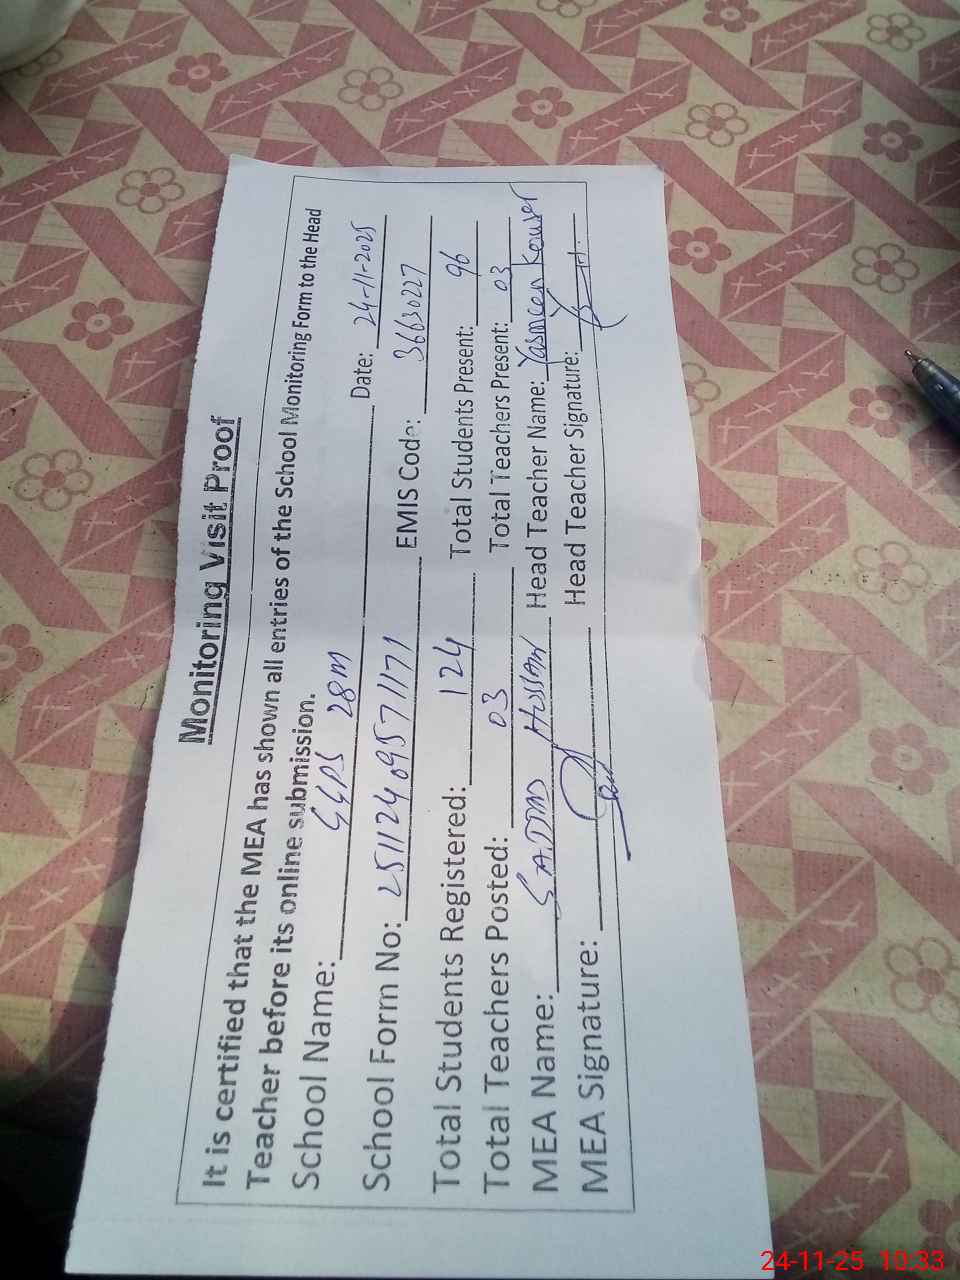 Monitoring Visit Proof
It is certified that the MEA has shown all entries of the School Monitoring Form to the Head
Teacher before its online submission.
School Name: GGPS 28M Date: 24-11-2025
School Form No: 25112409571171 EMIS Code: 36630227
Total Students Registered: 124 Total Students Present: 96
Total Teachers Posted: 03 Total Teachers Present: 03
MEA Name: SAJJAD HUSSAIN Head Teacher Name: Yasmeen Kouser
MEA Signature: Head Teacher Signature:
24-11-25 10:33